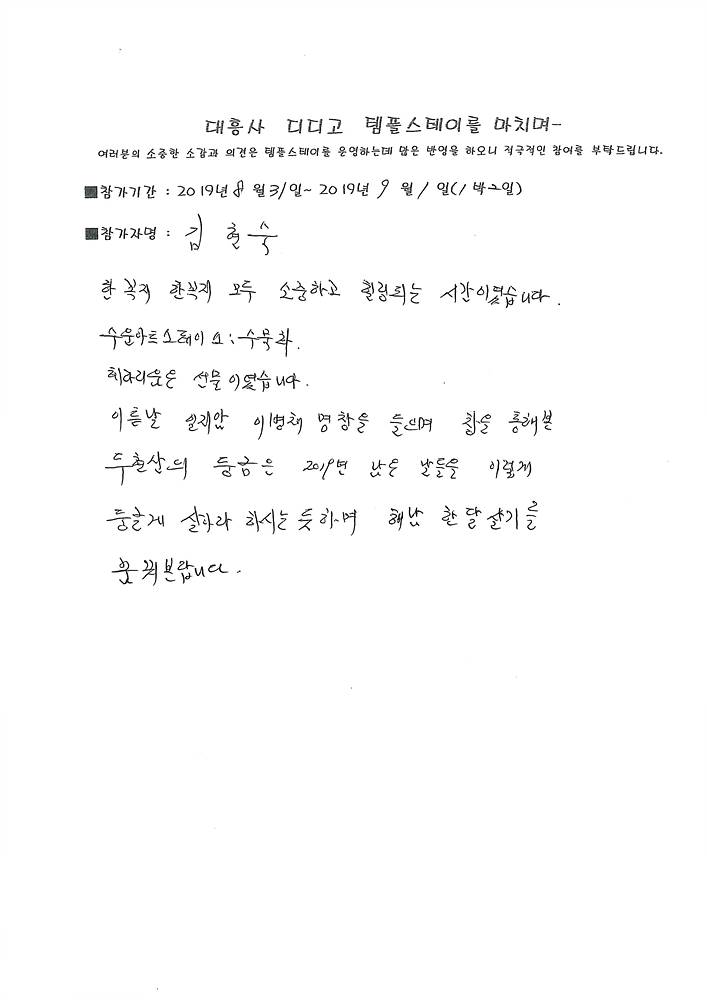 대흥사 디디고 템플스테이를 마치며-
여러분의 소중한 소감과 의견은 템플스테이를 운영하는데 많은 반영을 하오니 적극적인 참여를 부탁드립니다.
■참가기간 : 2019년 8월 31일~ 2019년 9월 1일(1박2일)
■참가자명 : 김현숙
한 꼭지 한꼭지 모두 소중하고 힐링되는 시간이였습니다.
수묵화.
선물이였습니다.
이튿날 명창을 들으며 창을 통해본
두륜산의 둥금은 2019년 남은 날들을 이렇게
둥글게 살아라 하시는 듯하며 해남 한달살기를
꿈꿔본랍니다.